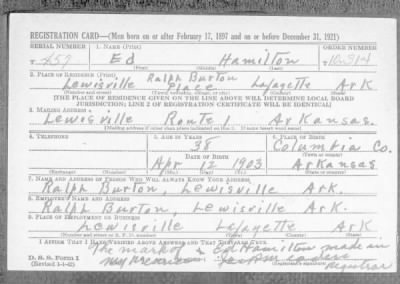 REGISTRATION CARD—(Men born on or after February 17, 1897 and on or before December 31, 1921)
SERIAL NUMBER 1. NAME (Print) ORDER NUMBER
Ed Hamilton
(First) (Middle) (Last)
2. PLACE OF RESIDENCE (Print)
Ralph Burton
Lewisville Place Lafayette Ark
(Number and street) (Town, township, village, or city) (County) (State)
[THE PLACE OF RESIDENCE GIVEN ON THE LINE ABOVE WILL DETERMINE LOCAL BOARD
JURISDICTION; LINE 2 OF REGISTRATION CERTIFICATE WILL BE IDENTICAL]
3. MAILING ADDRESS
Lewisville Route 1 Arkansas.
[Mailing address if other than place indicated on line 2. If same insert word same]
4. TELEPHONE 5. AGE IN YEARS 6. PLACE OF BIRTH
38 Columbia Co.
DATE OF BIRTH (Town or county)
Apr. 12 1903 Arkansas
(Exchange) (Number) (Mo.) (Day) (Yr.) (State or country)
7. NAME AND ADDRESS OF PERSON WHO WILL ALWAYS KNOW YOUR ADDRESS
Ralph Burton, Lewisville Ark.
8. EMPLOYER'S NAME AND ADDRESS
Ralph Burton, Lewisville Ark.
9. PLACE OF EMPLOYMENT OR BUSINESS
Lewisville Lafayette Ark
(Number and street or R. F. D. number) (Town) (County) (State)
I AFFIRM THAT I HAVE VERIFIED ABOVE ANSWERS AND THAT THEY ARE TRUE.
The mark of x Ed Hamilton made in
D. S. S. Form 1 my presence
(Revised 1-1-42) registrar